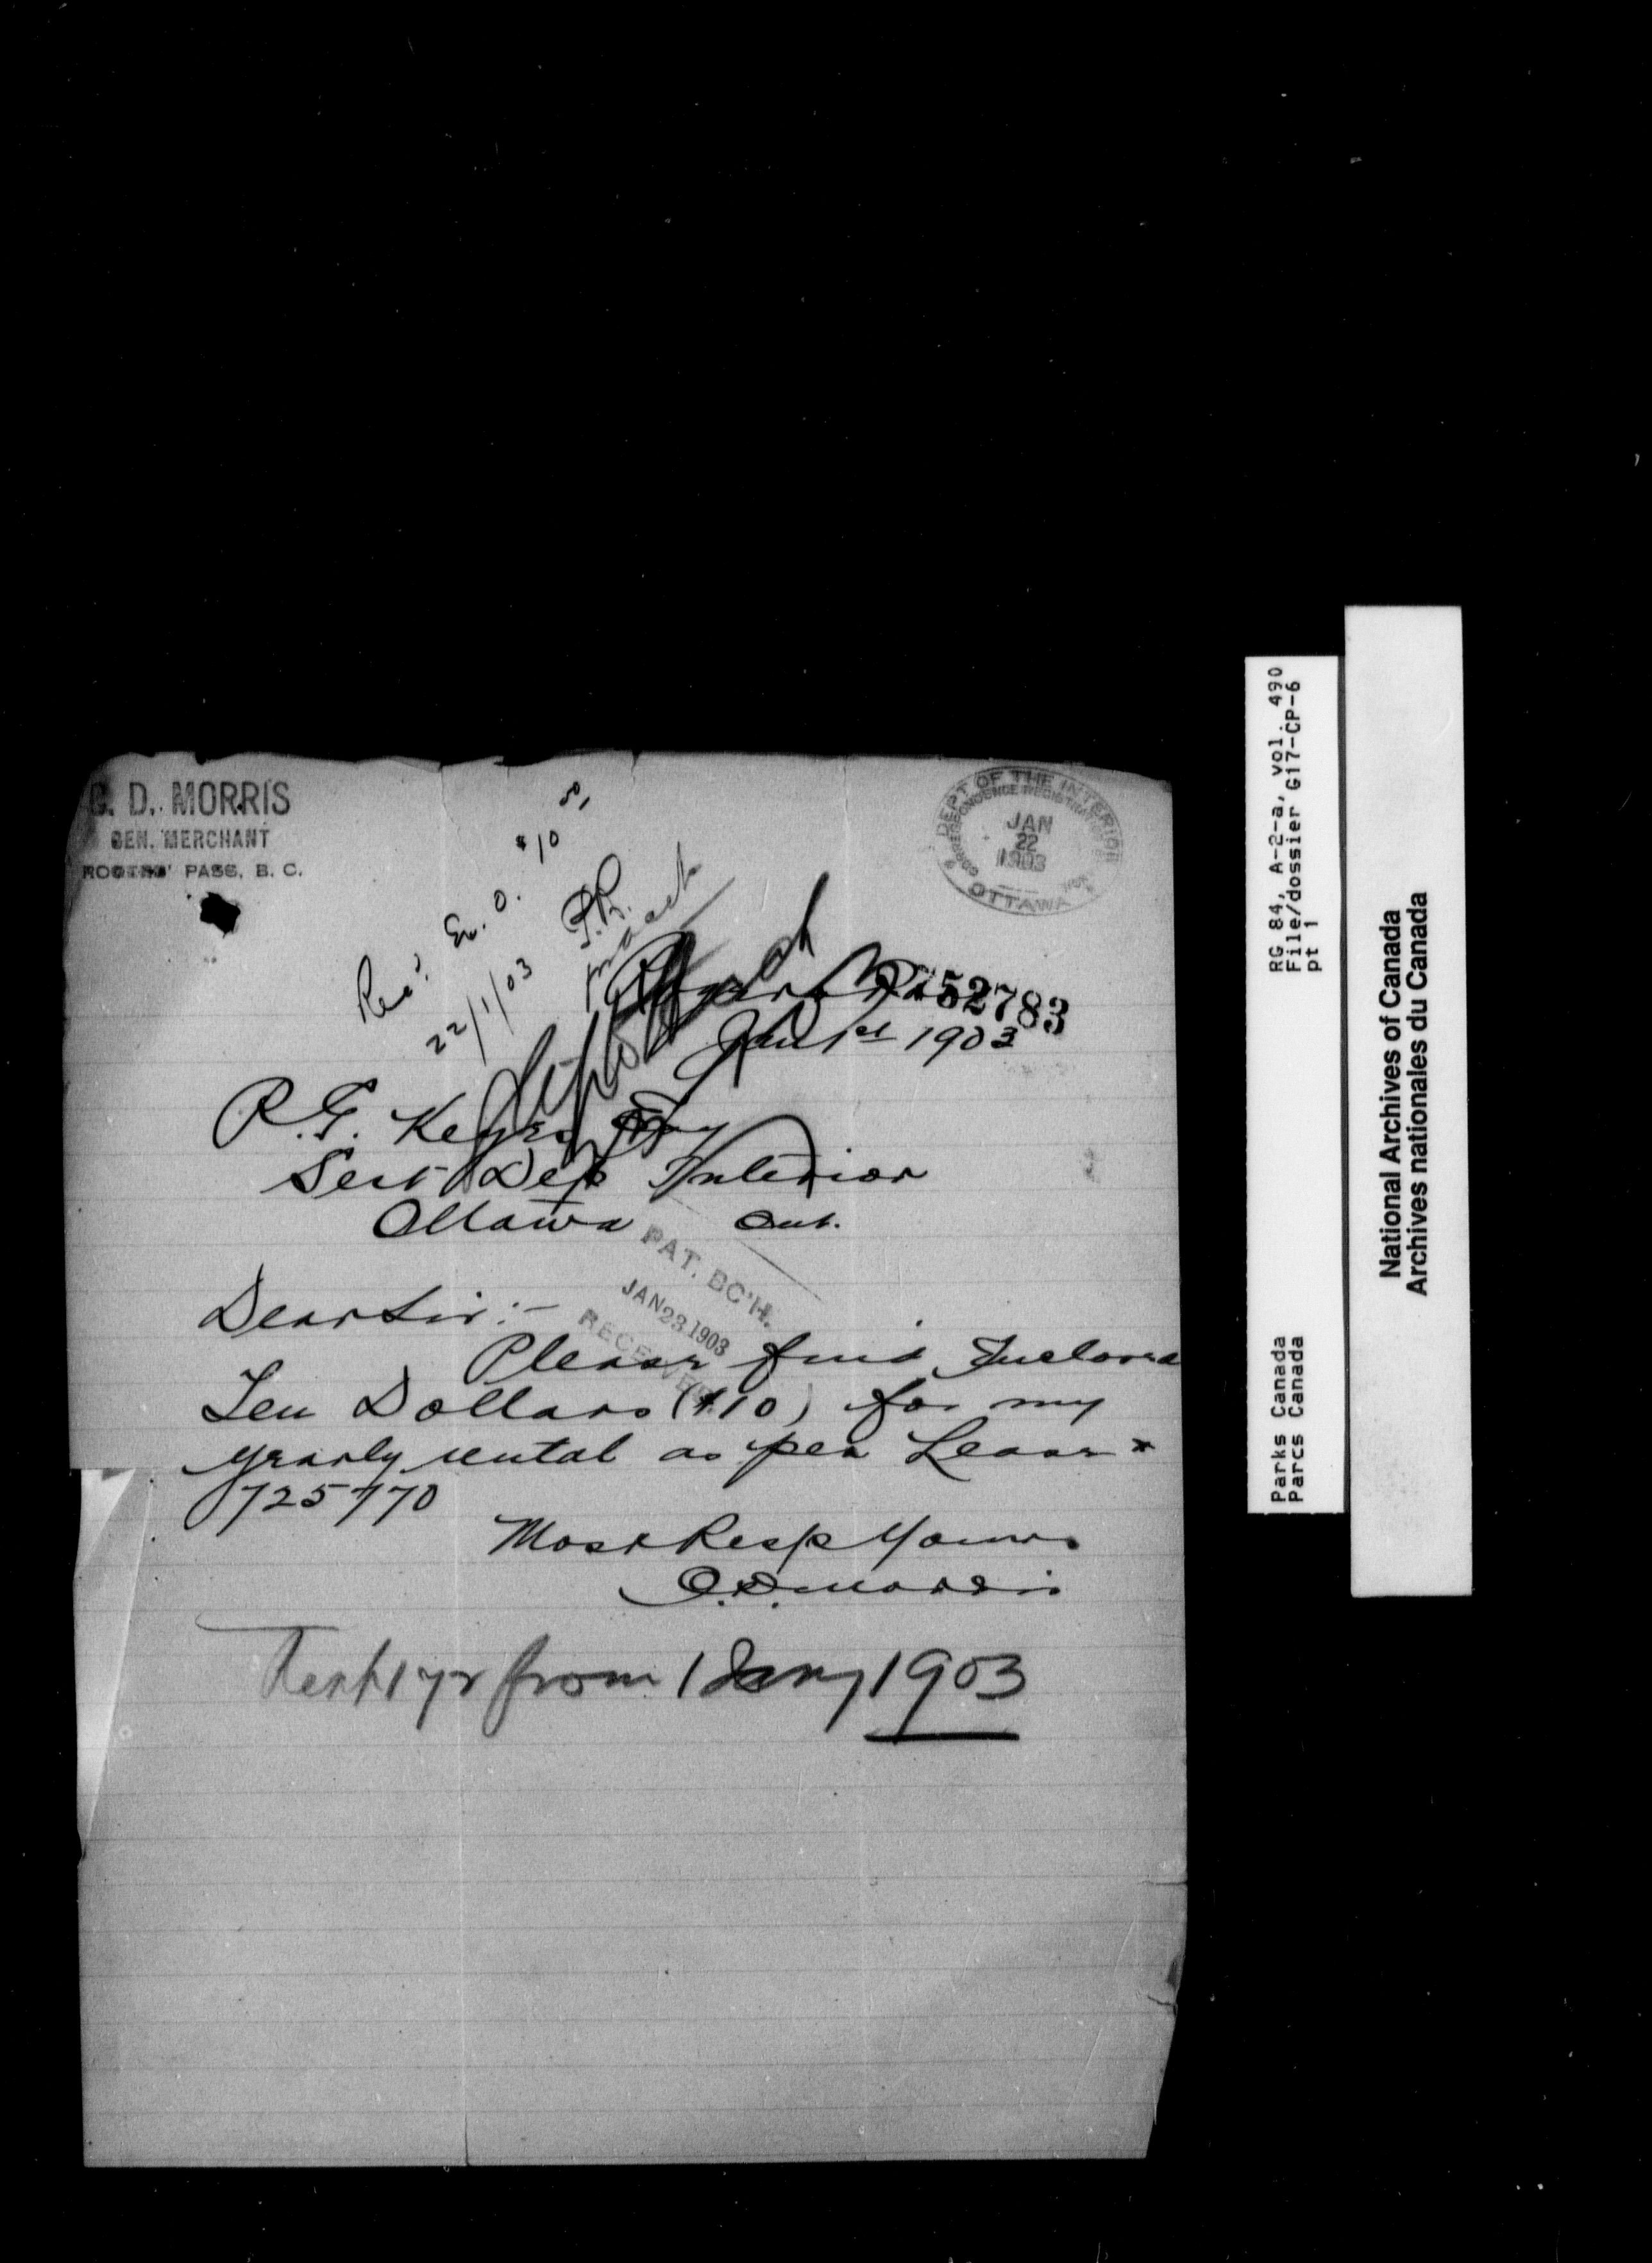 G. D. MORRIS
GEN. MERCHANT
ROGERS' PASS, B. C.
DEPT OF THE INTERIOR
CORRESPONDENCE REGISTRATION
JAN
22
1903
OTTAWA
$10
22/1/03
52783
Jan 1st 1903
P. G. Keyes Esq
Sect Dep Interior
Ottawa Ont.
PAT. BC'H.
JAN 23 1903
RECEIVED
Dear Sir :-
Please find Inclosed
Ten Dollars ($10) for my
yearly rental as per Lease
725770
Most Resp Yours
G. D. Morris
Rent 1 yr from 1 Jany 1903
RG 84, A-2-a, vol. 490
File/dossier G17-CP-6
pt 1
Parks Canada
Parcs Canada
National Archives of Canada
Archives nationales du Canada